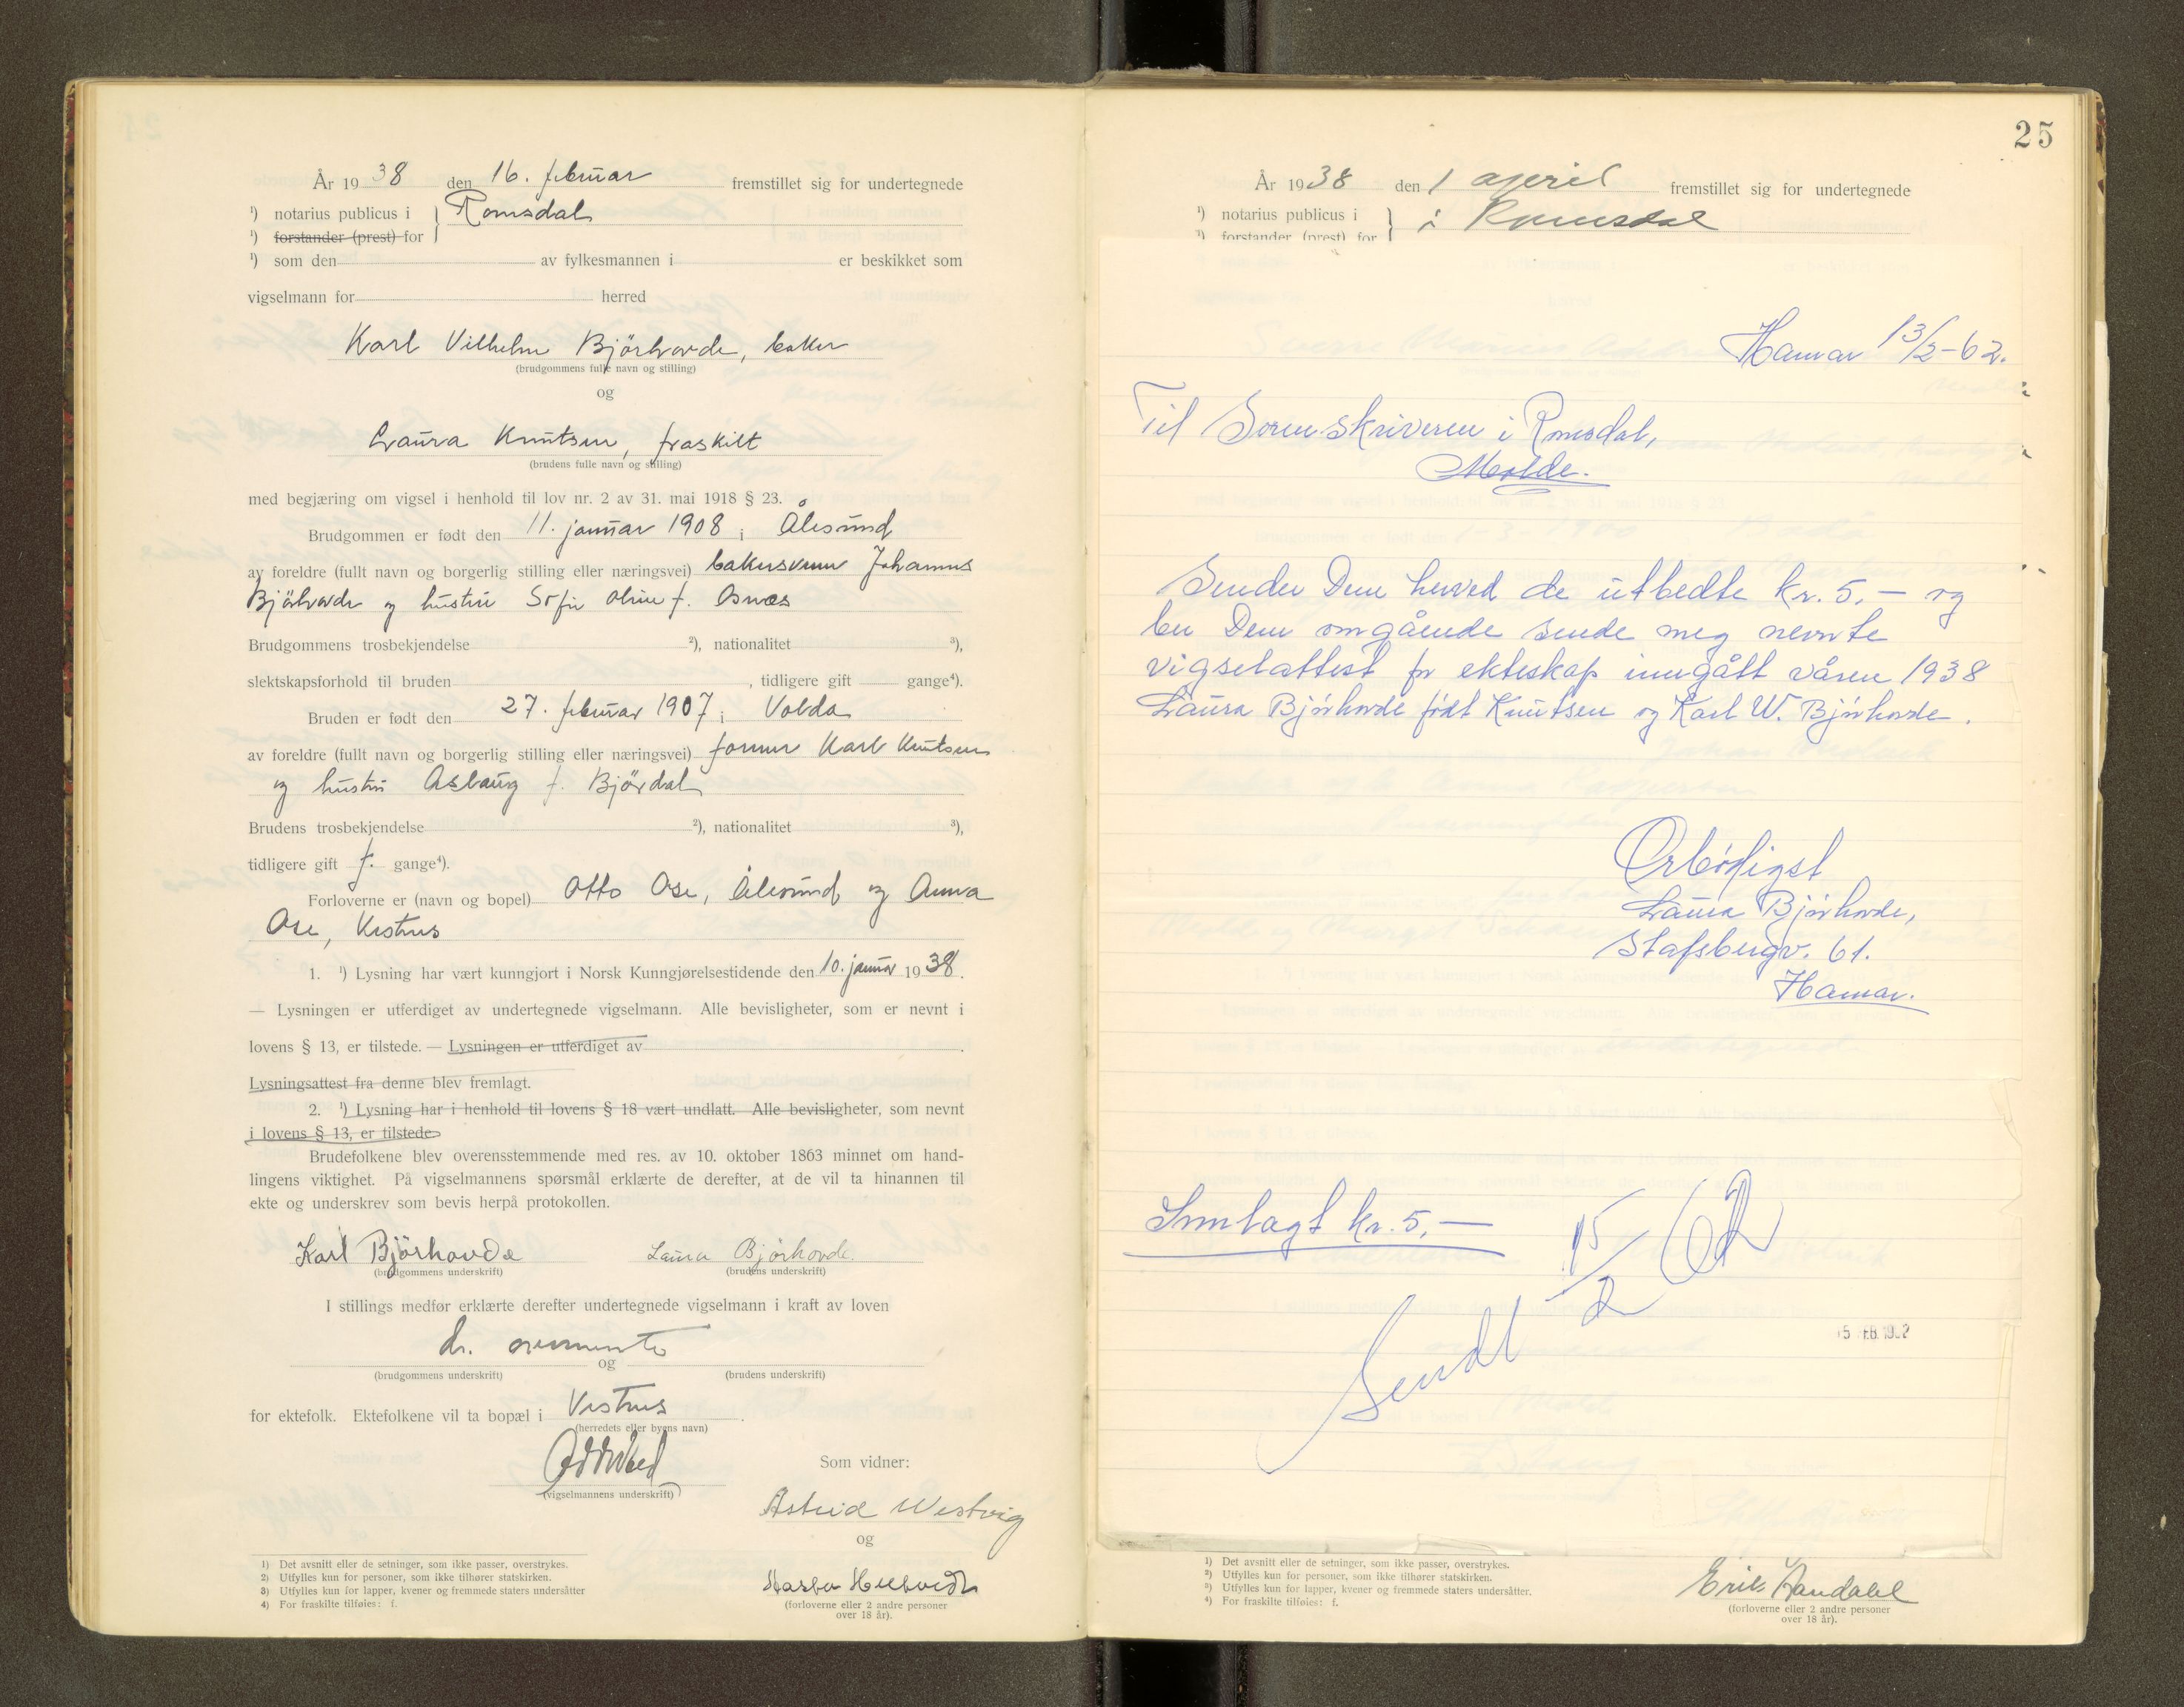 År 1938 den 16. februar fremstillet sig for undertegnede
¹) notarius publicus i } Romsdal
¹) forstander (prest) for
¹) som den av fylkesmannen i er beskikket som
vigselmann for herred
Karl Vilhelm Bjørhovde, baker
(brudgommens fulle navn og stilling)
og
Laura Knutsen, fraskilt
(brudens fulle navn og stilling)
med begjæring om vigsel i henhold til lov nr. 2 av 31. mai 1918 § 23.
Brudgommen er født den 11. januar 1908 i Ålesund
av foreldre (fullt navn og borgerlig stilling eller næringsvei) bakersvenn Johannes
Bjørhovde og hustru Sofie Oline f. Osnes
Brudgommens trosbekjendelse ²), nationalitet ³),
slektskapsforhold til bruden , tidligere gift gange⁴).
Bruden er født den 27. februar 1907 i Volda
av foreldre (fullt navn og borgerlig stilling eller næringsvei) former Karl Knutsen
og hustru Aslaug f. Bjørdal
Brudens trosbekjendelse ²), nationalitet ³),
tidligere gift f. gange⁴).
Forloverne er (navn og bopel) Otto Ose, Ålesund og Anna
Ose, Vestnes
1. ¹) Lysning har vært kunngjort i Norsk Kunngjørelsestidende den 10. januar 1938.
— Lysningen er utferdiget av undertegnede vigselmann. Alle bevisligheter, som er nevnt i
lovens § 13, er tilstede. — Lysningen er utferdiget av .
Lysningsattest fra denne blev fremlagt.
2. ¹) Lysning har i henhold til lovens § 18 vært undlatt. Alle bevisligheter, som nevnt
i lovens § 13, er tilstede
Brudefolkene blev overensstemmende med res. av 10. oktober 1863 minnet om hand-
lingens viktighet. På vigselmannens spørsmål erklærte de derefter, at de vil ta hinannen til
ekte og underskrev som bevis herpå protokollen.
Karl Bjørhovde Laura Bjørhovde
(brudgommens underskrift) (brudens underskrift)
I stillings medfør erklærte derefter undertegnede vigselmann i kraft av loven
de ovennevnte
og
(brudgommens underskrift) (brudens underskrift)
for ektefolk. Ektefolkene vil ta bopæl i Vestnes .
(herredets eller byens navn)
(vigselmannens underskrift)
Som vidner:
Astrid Westvig
og
(forloverne eller 2 andre personer
over 18 år).
1) Det avsnitt eller de setninger, som ikke passer, overstrykes.
2) Utfylles kun for personer, som ikke tilhører statskirken.
3) Utfylles kun for lapper, kvener og fremmede staters undersåtter
4) For fraskilte tilføies: f.
25
År 1938 den 1 april fremstillet sig for undertegnede
¹) notarius publicus i } i Romsdal
¹) forstander (prest) for
Hamar 13/2-62.
Til Sorenskriveren i Romsdal,
Molde.
Sender Dem herved de utbedte kr. 5,- og
ber Dem omgående sende meg nevnte
vigselattest for ekteskap inngått våren 1938
Laura Bjørhovde født Knutsen og Karl W. Bjørhovde.
Ærbødigst
Laura Bjørhovde,
Stafsbergv. 61.
Hamar.
Innlagt kr. 5,-
Sendt 15/2 62
15 FEB. 1962
1) Det avsnitt eller de setninger, som ikke passer, overstrykes.
2) Utfylles kun for personer, som ikke tilhører statskirken.
3) Utfylles kun for lapper, kvener og fremmede staters undersåtter.
4) For fraskilte tilføies: f.
Erik Aandahl
(forloverne eller 2 andre personer
over 18 år).